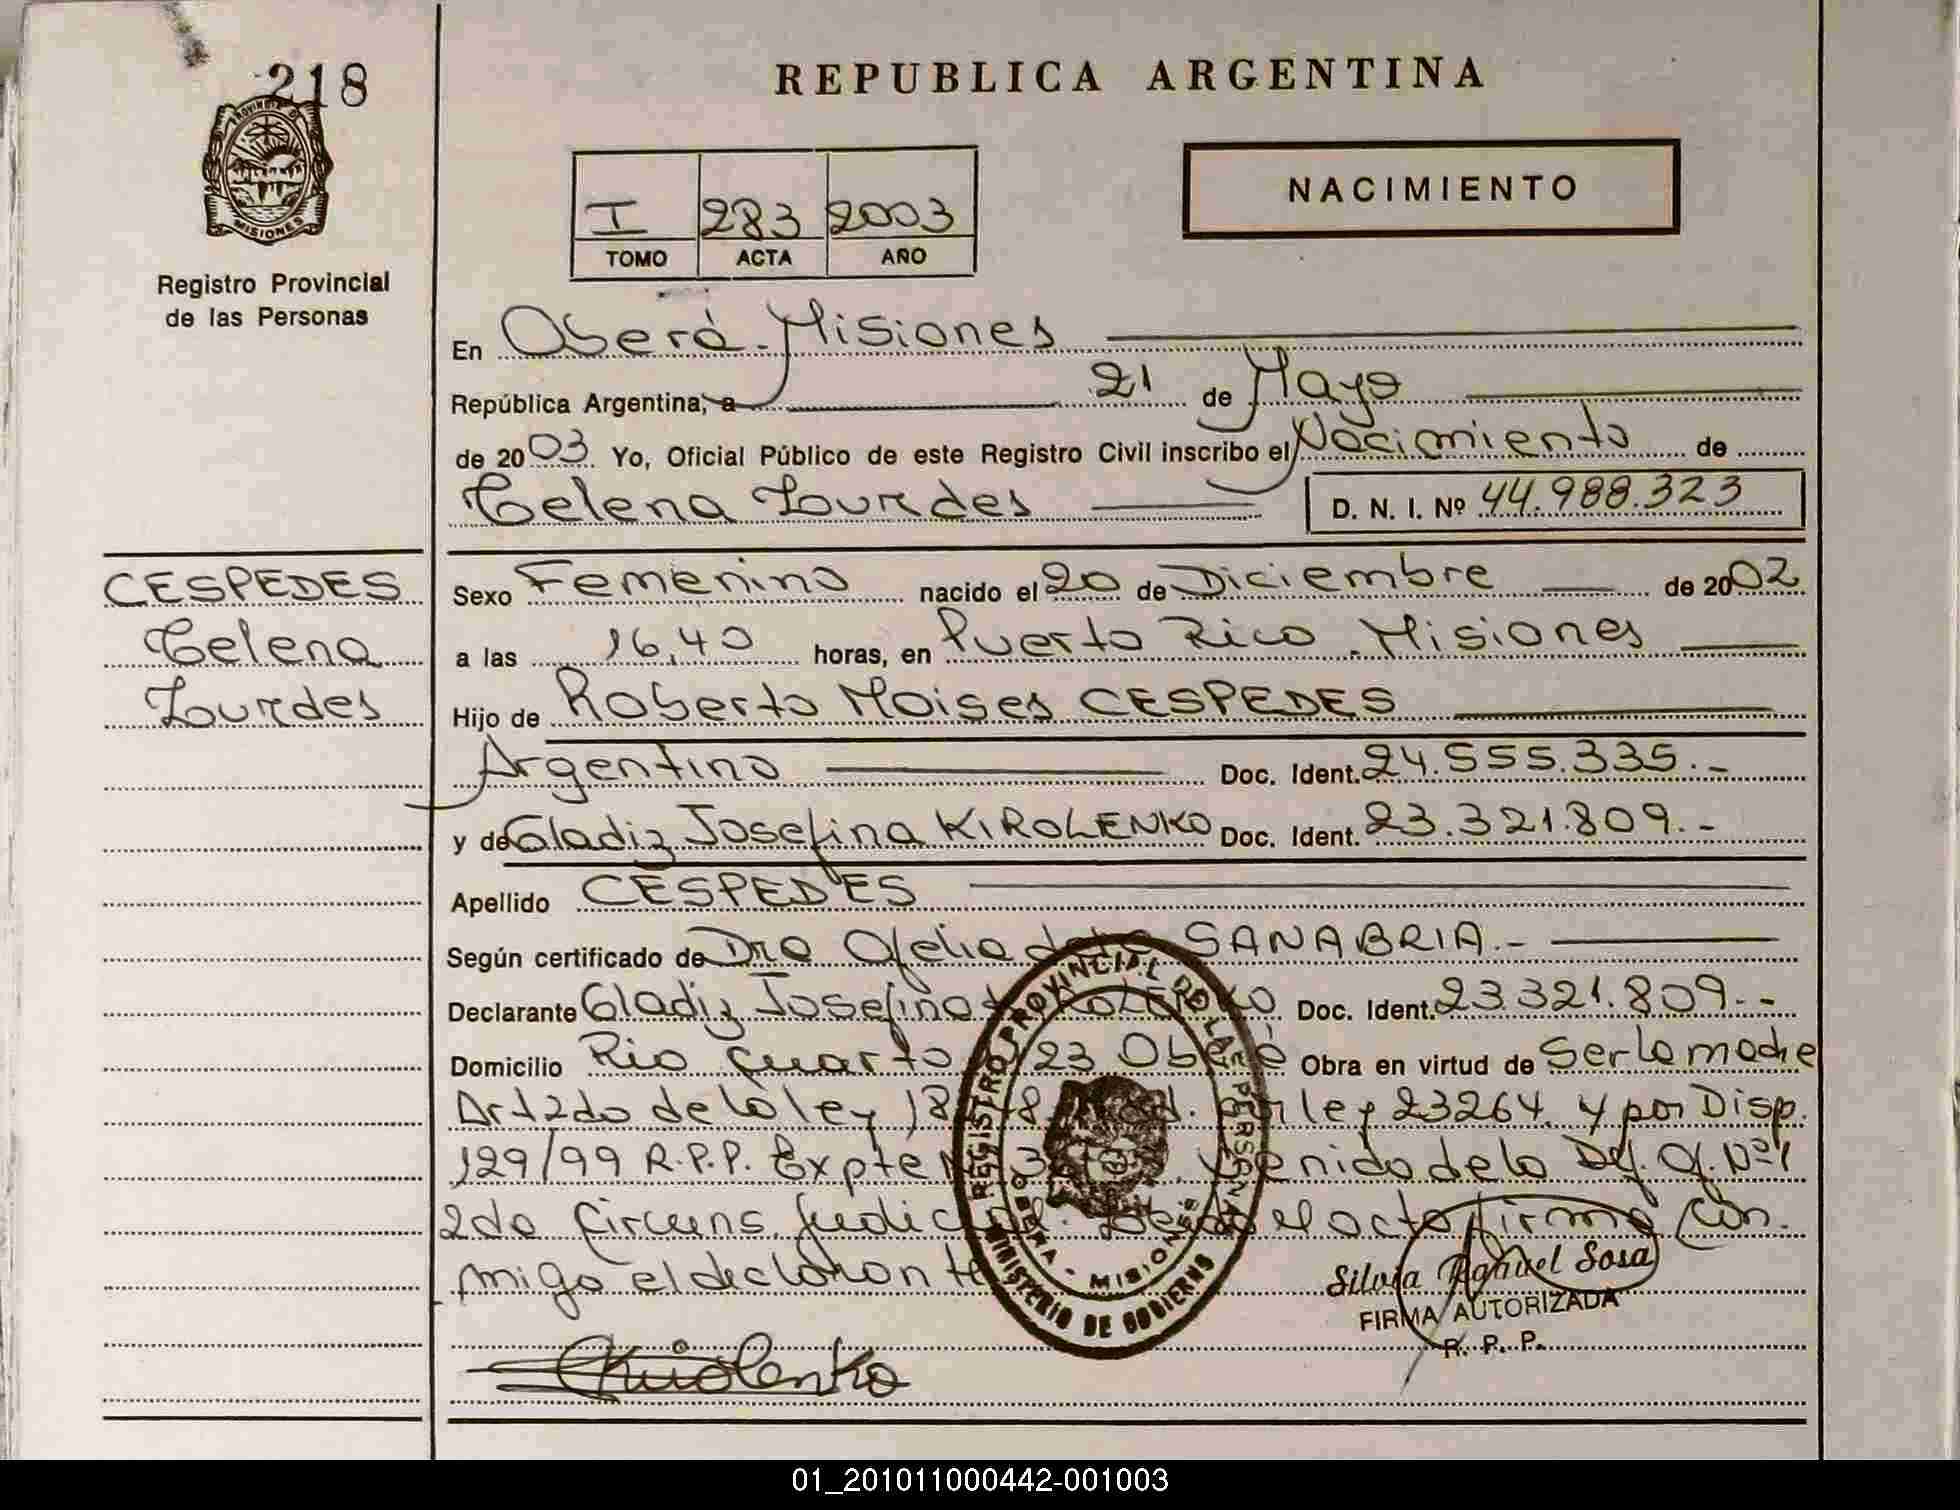 218
PROVINCIA DE
MISIONES
Registro Provincial
de las Personas
REPUBLICA ARGENTINA
I 283 2003
TOMO ACTA AÑO
NACIMIENTO
En Oberá - Misiones
República Argentina, a 21 de Mayo
de 2003. Yo, Oficial Público de este Registro Civil inscribo el Nacimiento de
Celena Lourdes D. N. I. Nº 44.988.323
CESPEDES
Celena
Lourdes
Sexo Femenino nacido el 20 de Diciembre de 2002
a las 16,40 horas, en Puerto Rico - Misiones
Hijo de Roberto Moises CESPEDES
Argentino Doc. Ident. 24.555.335.-
y de Gladiz Josefina KIROLENKO Doc. Ident. 23.321.809.-
Apellido CESPEDES
Según certificado de Dra Ofelia SANABRIA.-
Declarante Gladiz Josefina Doc. Ident. 23.321.809.-
Domicilio Rio Cuarto 23 Oberá Obra en virtud de Ser la madre
Art 2do de la ley ley 23264. y por Disp.
129/99 R.P.P. Expte de la Def. Of. Nº 1
2da Circuns. Judicial. el acta firma con
migo el declarante
REGISTRO PROVINCIAL DE LAS PERSONAS
OBERA - MISIONES
MINISTERIO DE GOBIERNO
Silvia Sosa
FIRMA AUTORIZADA
R. P. P.
01_201011000442-001003